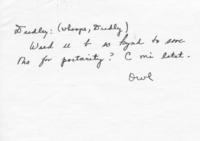 Dudley: (whoops, Dudly)
Wud u b so kynd to sine
this for postarity? C mi letat.
Owl